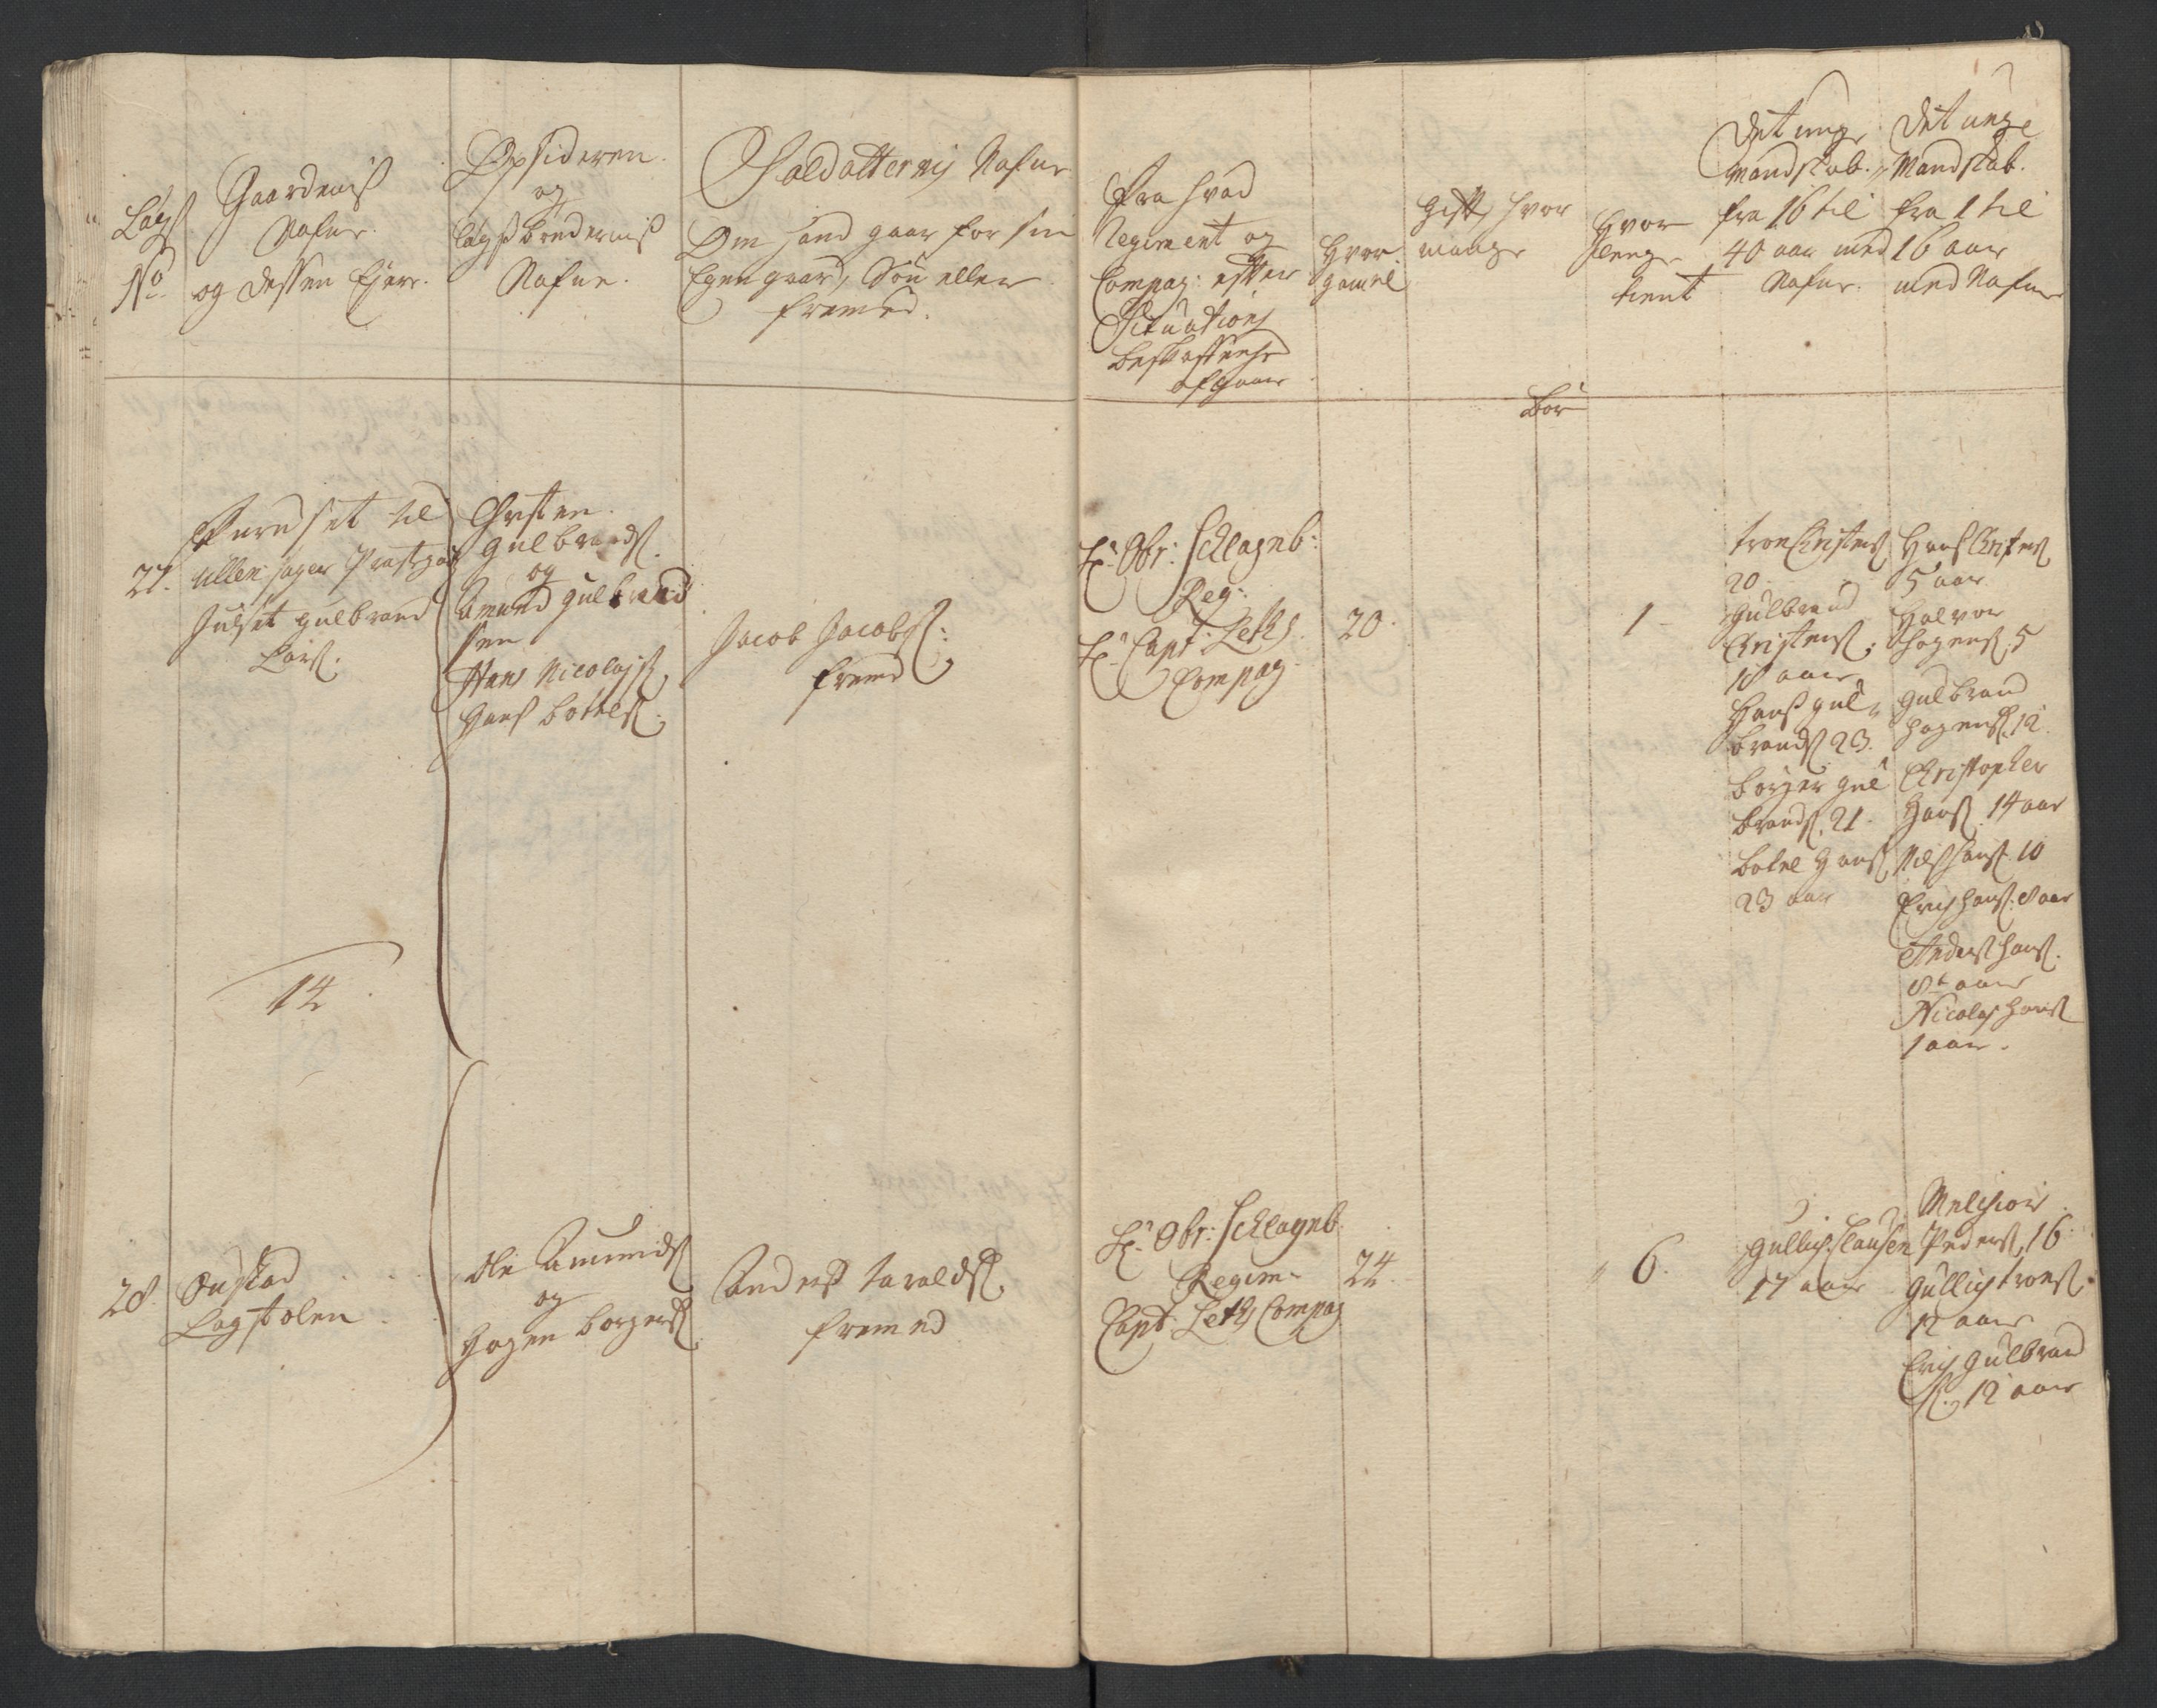 Lægs
No
Gaardenis
Nafne
og dessen Ejere.
Opsideren
og
lægsbrødernis
Nafne.
Soldatternis Nafne
Om hand gaar for sin
Egen gaard, Søn eller
fremed.
Fra hvad
Regiment og
Compag: efter
Situations
beskaffenhed
afgaar
Hvor
gamel
Gift, hvor
mange
Bør
Hvor
lenge
tient
Det unge
Mandskab.
fra 16 til
40 aar med
Nafne.
Det unge
Mandskab.
fra 1 til
16 aar
med Nafne
27.
Furuset til
Ullensager Præstgaa
Julset gulbrand
Lars:
14
Christen
Gulbrands.
og
Amund gulbrand
sen
Hans Nicolajs.
Hans botels:
Jacob Jacobs:
fremd
Hr. Obr: Schlagnb:
Reg:
Hr. Capt: Leths
Compag
20.
1
tron Christens
20.
Gulbrand
Christens:
18 aar
Hans gul
brands 23.
Børger gul
brands 21.
botel Hans
23 aar
Hans Christens
5 aar
Halvor
hagens 5
gulbrand
hagens 12
Christopher
Hans. 14 aar
Nils hans. 10
Erich hans: 8 aar
Anders hans.
8t aar
Nicolaj hans
1 aar.
28.
Onstad
Lagstolen
Ole Amunds
og
Hagen børgers
Anders taralds
fremed
Hr. Obr: Schlagnb
Regim
Capt: Leths Compag
24.
6.
Gullich Clausen
17 aar
Melchior
Peders 16
Gullich trons
12 aar
Erich Gulbrand
s. 12 aar